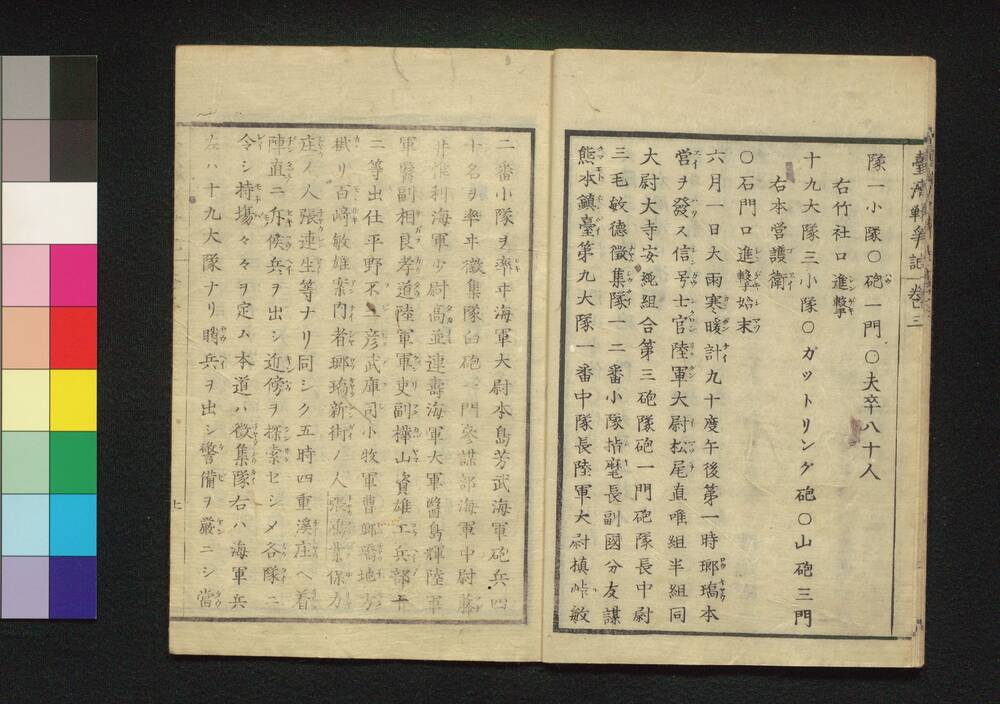 臺湾戰爭記 卷三
隊一小隊〇砲一門〇夫卒八十人
右竹社口進撃
十九大隊三小隊〇ガットリング砲〇山砲三門
右本営護衛
〇石門口進撃始末
六月一日大雨寒暖計九十度午後第一時瑯𤩝本
営ヲ發ス信号士官陸軍大尉松尾直唯組半組同
大尉大寺安純組合第三砲隊砲一門砲隊長中尉
三毛敏徳徴集隊一二番小隊指麾長副國分友謀
熊本鎮臺第九大隊一番中隊長陸軍大尉槙峠敏
二番小隊ヲ率ヰ海軍大尉本島芳武海軍砲兵四
十名ヲ率ヰ徴集隊臼砲一門参謀部海軍中尉藤
井惟利海軍少尉髙並連壽海軍大軍醫島輝陸軍
軍醫副相良孝道陸軍軍吏副樺山資雄工兵部十
三等出仕平野不二彦武庫司小牧軍曹
リ百﨑敏雄案内者瑯𤩝新街ノ人張
庄ノ人張連生等ナリ同シク五時四重溪庄ヘ着
陣直ニ斥候兵ヲ出シ近傍ヲ探索セシメ各隊ニ
令シ持場々々ヲ定ム本道ハ徴集隊右ハ海軍兵
左ハ十九大隊ナリ哨兵ヲ出シ警備ヲ嚴ニシ當